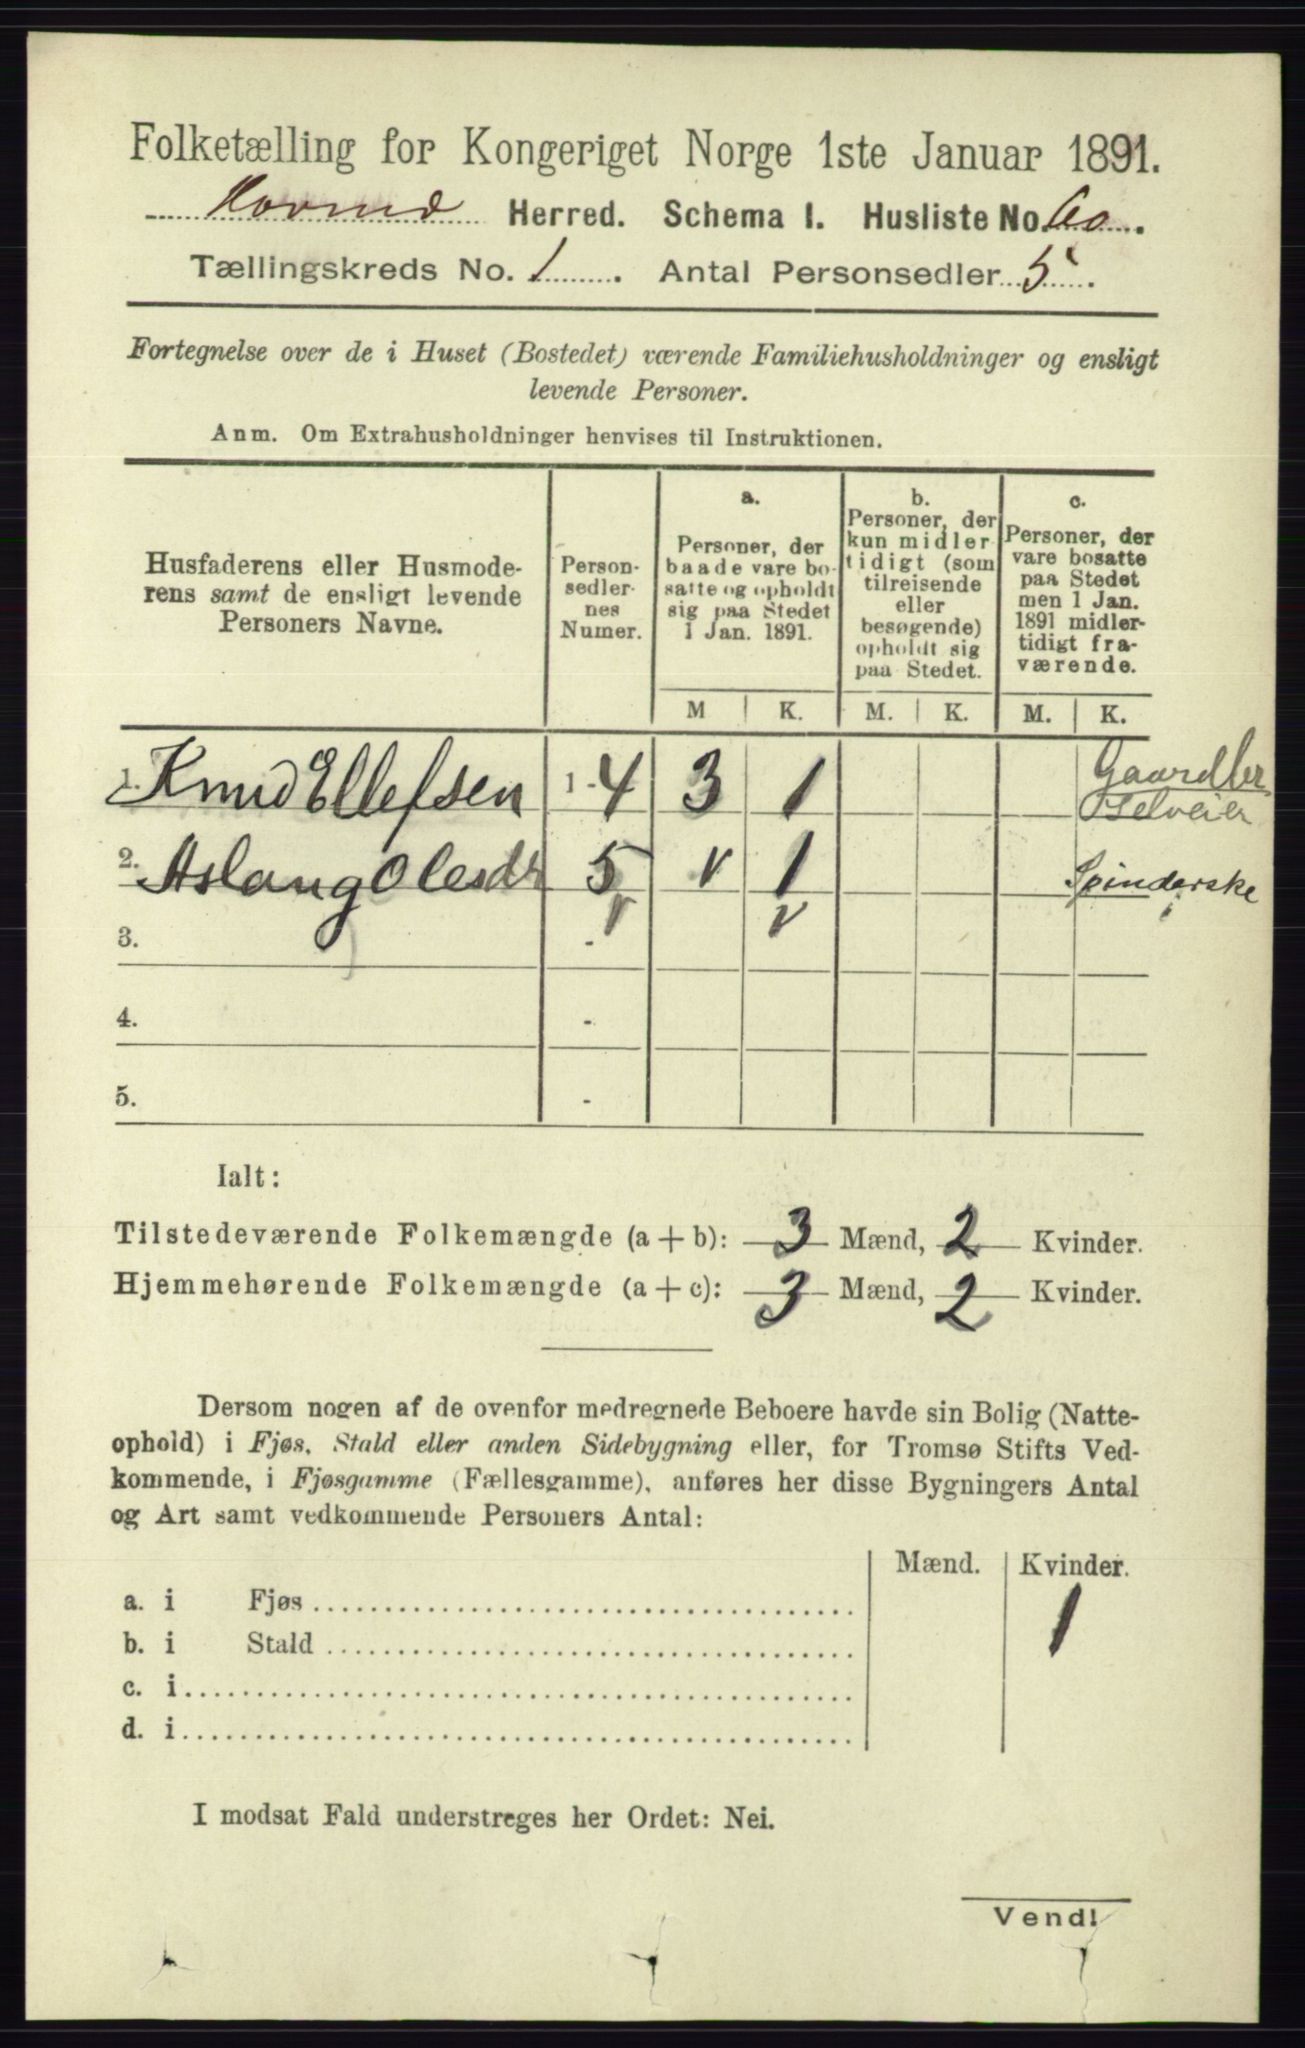 Folketælling for Kongeriget Norge 1ste Januar 1891.
Hovind Herred. Schema I. Husliste No. 60.
Tællingskreds No. 1. Antal Personsedler 5.
Fortegnelse over de i Huset (Bostedet) værende Familiehusholdninger og ensligt
levende Personer.
Anm. Om Extrahusholdninger henvises til Instruktionen.
Husfaderens eller Husmode-
rens samt de ensligt levende
Personers Navne.
Person-
sedler-
nes
Numer.
a.
Personer, der
baade vare bo-
satte og opholdt
sig paa Stedet
1 Jan. 1891.
b.
Personer, der
kun midler-
tidigt (som
tilreisende
eller
besøgende)
opholdt sig
paa Stedet.
c.
Personer, der
vare bosatte
paa Stedet
men 1 Jan.
1891 midler-
tidigt fra-
værende.
M K. M. K. M. K.
1. Knud Ellefsen 1-4 3 1 Gaardbr
Selveier
2. Aslaug Olesdr 5 v 1 Spinderske
3. - v v
4. -
5. -
Ialt:
Tilstedeværende Folkemængde (a + b): 3 Mænd, 2 Kvinder.
Hjemmehørende Folkemængde (a + c): 3 Mænd, 2 Kvinder.
Dersom nogen af de ovenfor medregnede Beboere havde sin Bolig (Natte-
ophold) i Fjøs, Stald eller anden Sidebygning eller, for Tromsø Stifts Ved-
kommende, i Fjøsgamme (Fællesgamme), anføres her disse Bygningers Antal
og Art samt vedkommende Personers Antal:
Mænd. Kvinder.
a. i Fjøs 1
b. i Stald
c. i
d. i
I modsat Fald understreges her Ordet: Nei.
Vend!